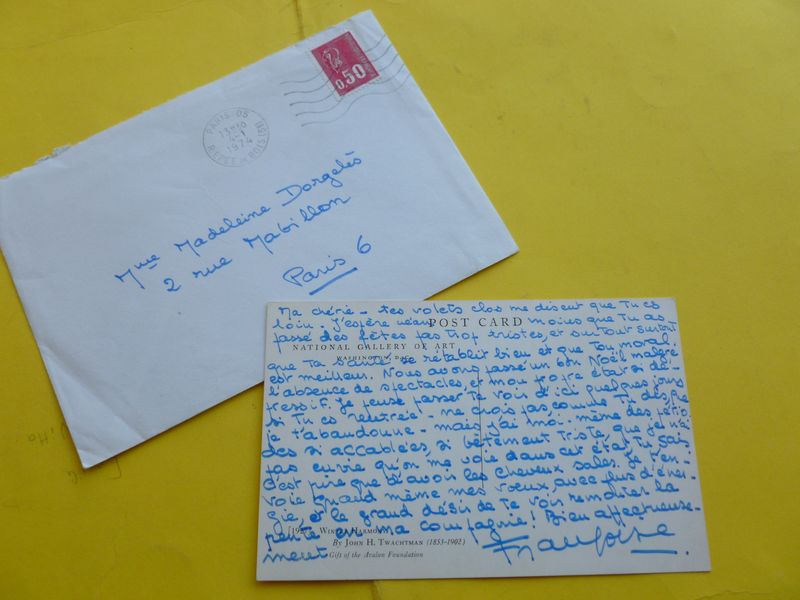 0,50
PARIS - 05
13H30
4-1
1974
Mme Madeleine Dorgelès
2 rue Mabillon
Paris 6
Ma chérie - tes volets clos me disent que tu es
loin. J'espère néan POST CARD moins que tu as
passé des fêtes pas trop tristes, et surtout surtout
NATIONAL GALLERY OF ART
WASHINGTON, D.C.
que ta santé se rétablit bien et que ton moral
est meilleur. Nous avons passé un bon Noël malgré
l'absence de spectacles, et mon état si dé-
pressif. Je pense passer te voir d'ici quelques jours
si tu es rentrée! ne crois pas comme tu dis que
je t'abandonne - mais j'ai moi-même des pério-
des si accablées, si bêtement triste, que je n'ai
pas envie qu'on me voie dans cet état, tu sais
c'est pire que d'avoir les cheveux sales. Je t'en-
voie quand même mes vœux, avec plus d'éner-
gie, et le grand désir de te voir remonter la
pente en ma compagnie! Bien affectueuse-
ment
WINTER HARMONY
By JOHN H. TWACHTMAN (1853-1902)
Gift of the Avalon Foundation
Françoise